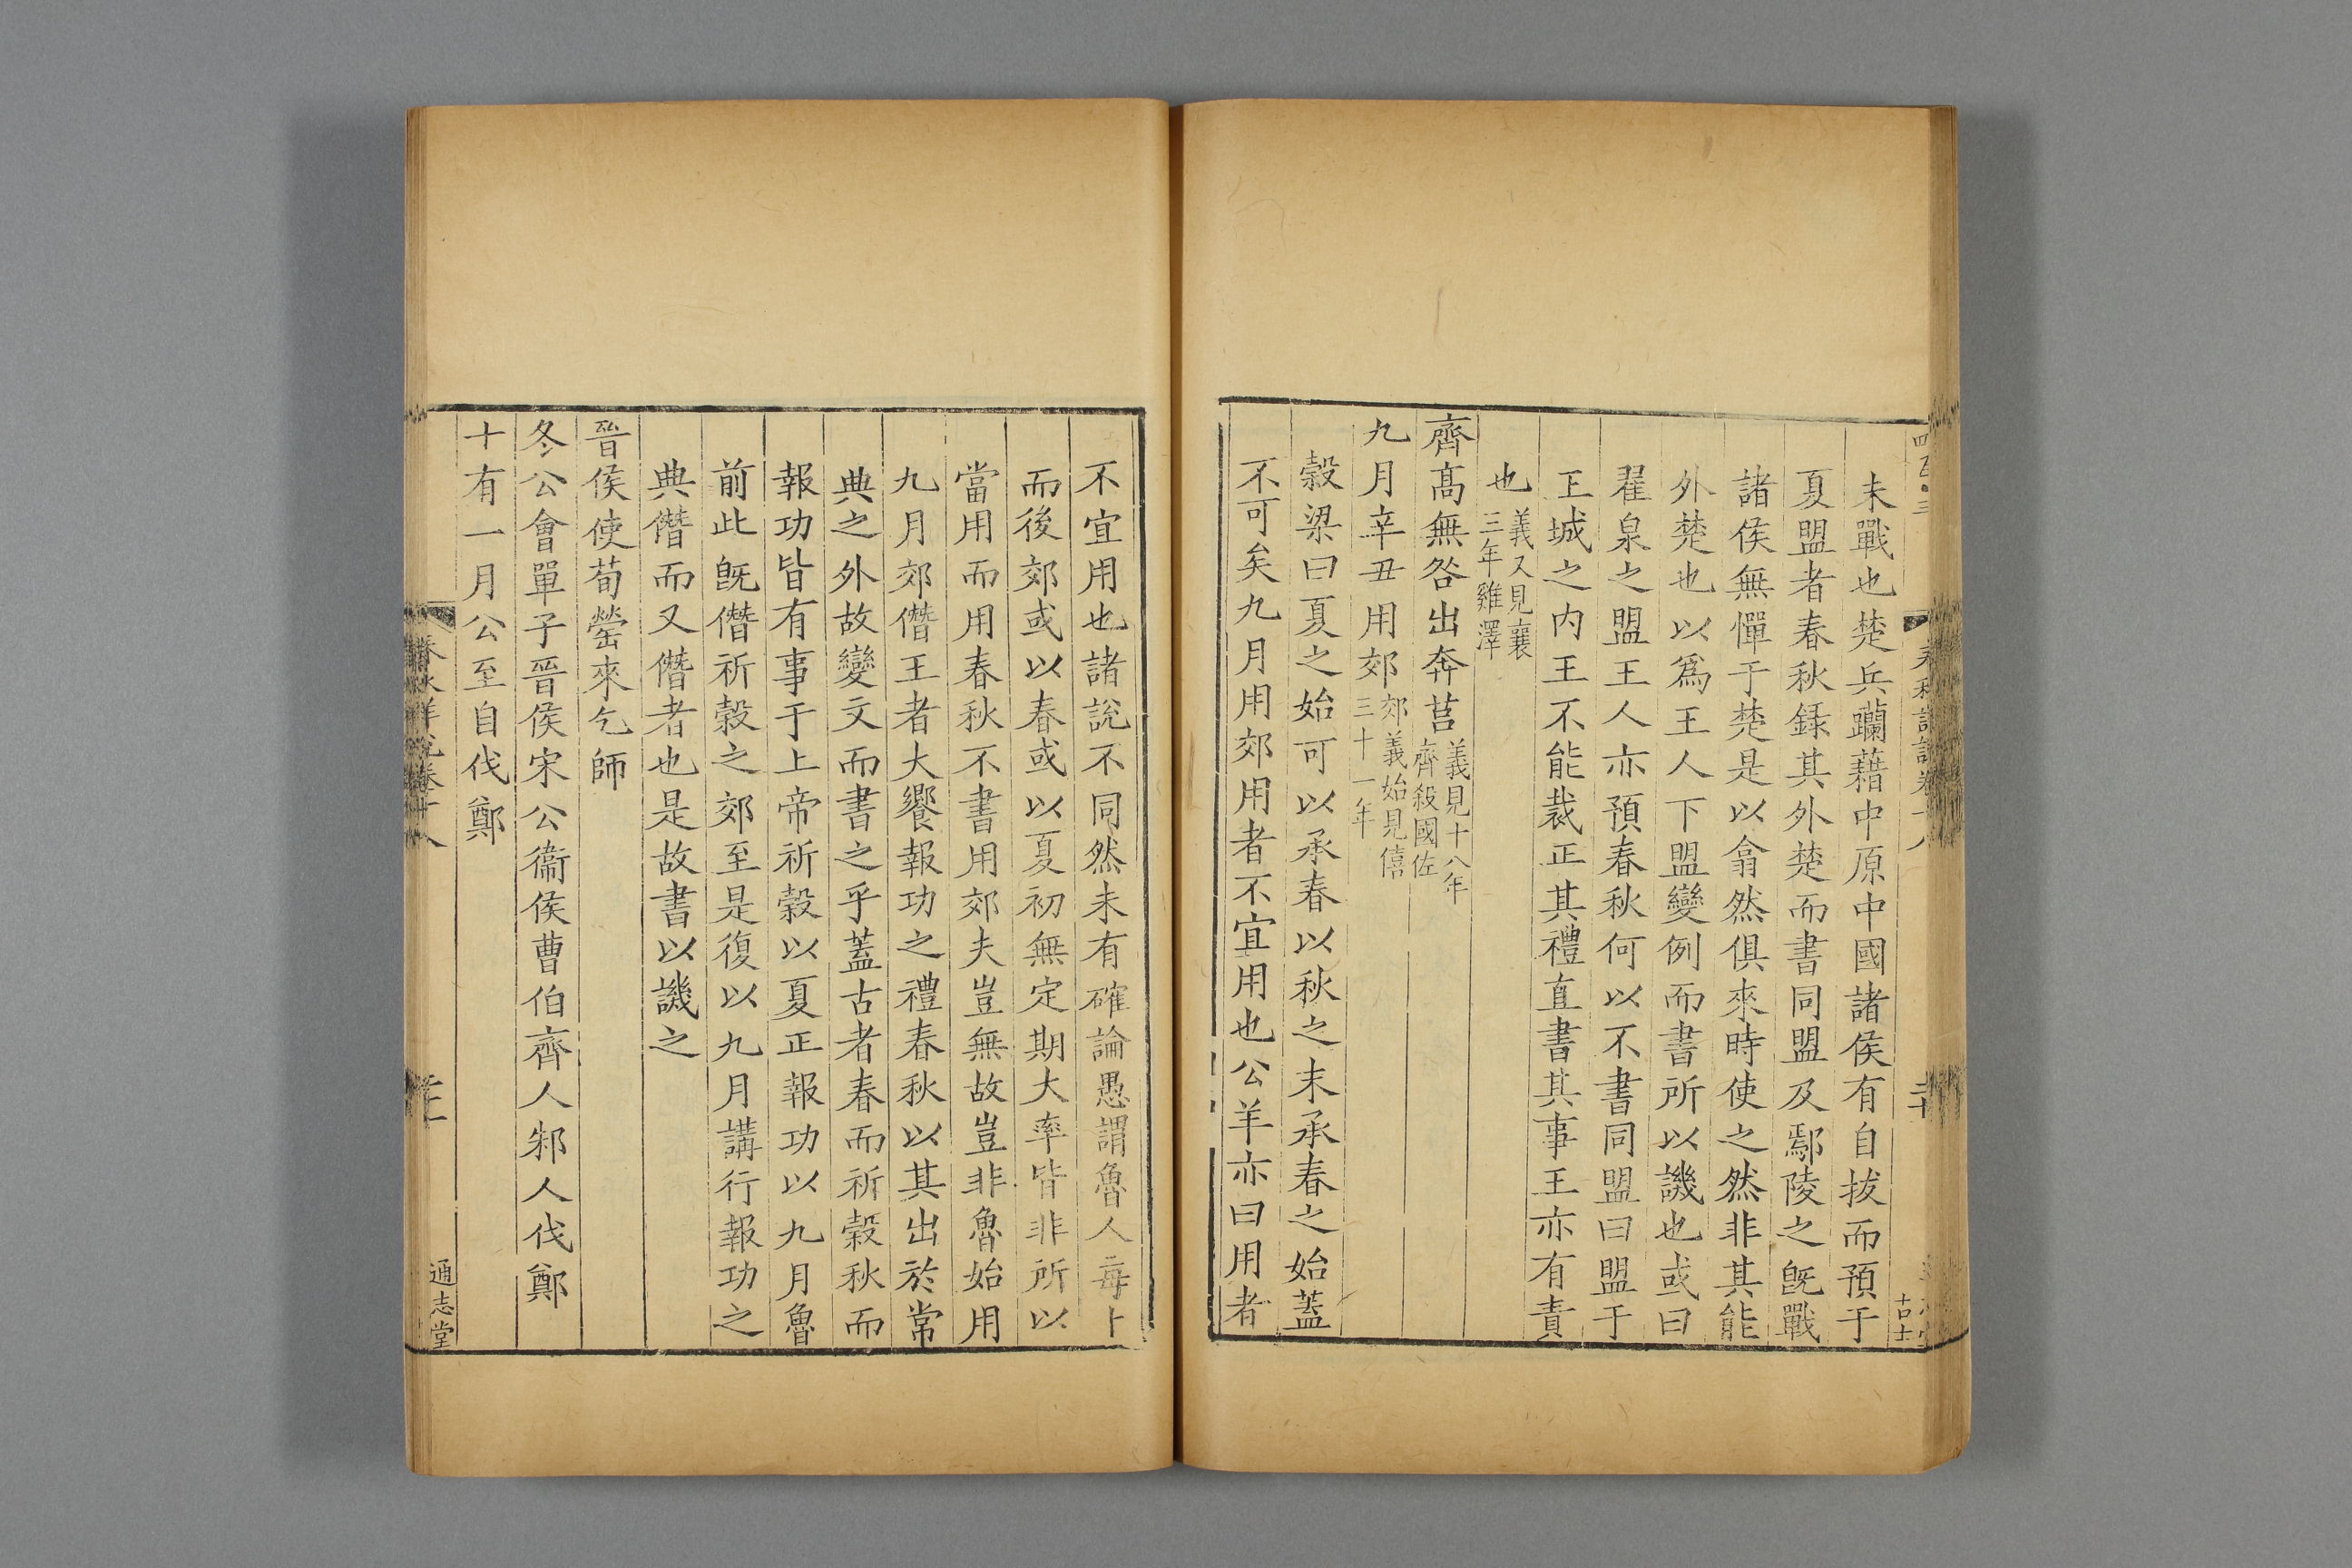 未戰也楚兵躪藉中原中國諸侯有自拔而預于
夏盟者春秋録其外楚而書同盟及鄢陵之旣戰
諸侯無憚于楚是以翕然俱來時使之然非其能
外楚也以爲王人下盟變例而書所以譏也或曰
翟泉之盟王人亦預春秋何以不書同盟曰盟于
王城之内王不能裁正其禮直書其事王亦有責
也義又見襄三年雞澤
齊髙無咎出奔莒義見十八年齊殺國佐
九月辛丑用郊郊義始見僖三十一年
穀梁曰夏之始可以承春以秋之末承春之始蓋
不可矣九月用郊用者不宜用也公羊亦曰用者
不宜用也諸說不同然未有確論愚謂魯人每卜
而後郊或以春或以夏初無定期大率皆非所以
當用而用春秋不書用郊夫豈無故豈非魯始用
九月郊僭王者大饗報功之禮春秋以其出於常
典之外故變文而書之乎蓋古者春而祈穀秋而
報功皆有事于上帝祈穀以夏正報功以九月魯
前此旣僭祈穀之郊至是復以九月講行報功之
典僭而又僭者也是故書以譏之
晉侯使荀罃來乞師
冬公會單子晉侯宋公衞侯曹伯齊人邾人伐鄭
十有一月公至自伐鄭
春秋詳說卷十八
通志堂